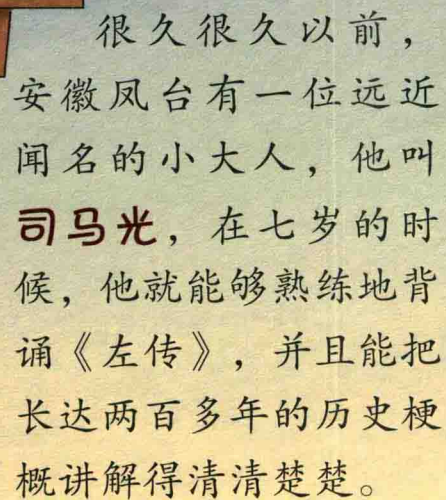 很久很久以前，
安徽凤台有一位远近
闻名的小大人，他叫
司马光，在七岁的时
候，他就能够熟练地背
诵《左传》，并且能把
长达两百多年的历史梗
概讲解得清清楚楚。